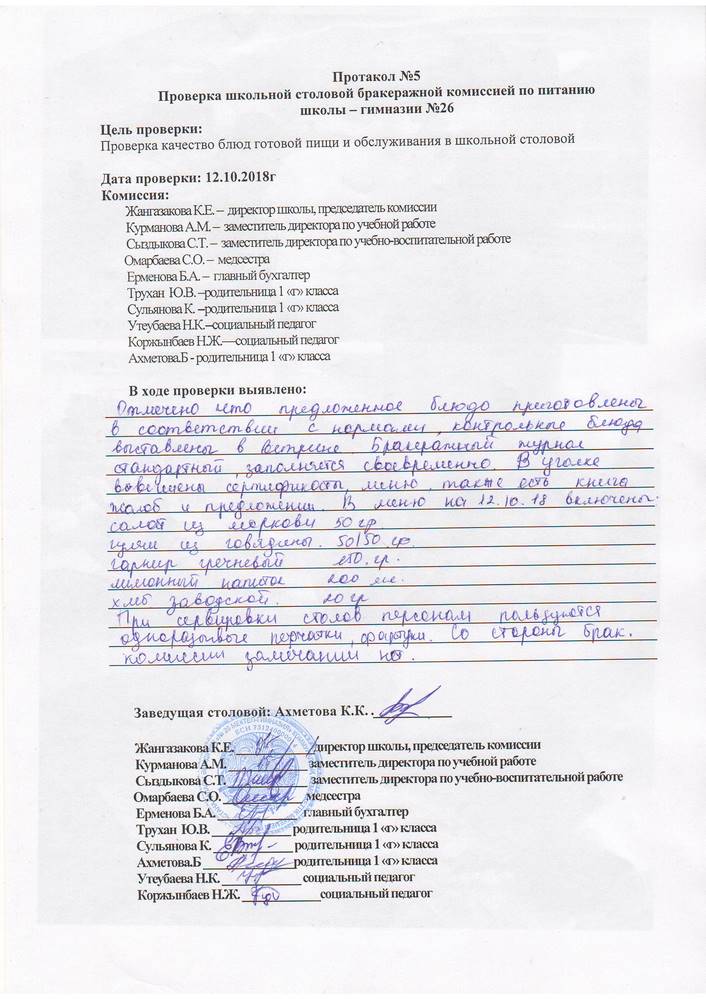 Протакол №5
Проверка школьной столовой бракеражной комиссией по питанию
школы – гимназии №26
Цель проверки:
Проверка качество блюд готовой пищи и обслуживания в школьной столовой
Дата проверки: 12.10.2018г
Комиссия:
Жангазакова К.Е. – директор школы, председатель комиссии
Курманова А.М. – заместитель директора по учебной работе
Сыздыкова С.Т. – заместитель директора по учебно-воспитательной работе
Омарбаева С.О. – медсестра
Ерменова Б.А. – главный бухгалтер
Трухан Ю.В. –родительница 1 «г» класса
Сульянова К. –родительница 1 «г» класса
Утеубаева Н.К.–социальный педагог
Коржынбаев Н.Ж.—социальный педагог
Ахметова.Б - родительница 1 «г» класса
В ходе проверки выявлено:
Отмечено что предложенное блюдо приготовлены
в соответствии с нормами, контрольные блюда
выставлены в витрине. Бракеражный журнал
стандартный, заполняется своевременно. В уголке
вывешены сертификаты, меню, также есть книга
жалоб и предложении. В меню на 12.10.18 включены:
салат из моркови 50 гр.
гуляш из говядины. 50/50 гр.
гарнир гречневый 150. гр.
лимонный напиток 200 мл.
хлеб заводской. 20 гр
При сервировки столов персонал пользуются
одноразывые перчатки, фартуки. Со стороны брак.
комиссии замечании нет.
Заведущая столовой: Ахметова К.К. .
Жангазакова К.Е. директор школы, председатель комиссии
Курманова А.М. заместитель директора по учебной работе
Сыздыкова С.Т. заместитель директора по учебно-воспитательной работе
Омарбаева С.О. медсестра
Ерменова Б.А. главный бухгалтер
Трухан Ю.В. родительница 1 «г» класса
Сульянова К. родительница 1 «г» класса
Ахметова.Б родительница 1 «г» класса
Утеубаева Н.К. социальный педагог
Коржынбаев Н.Ж. социальный педагог